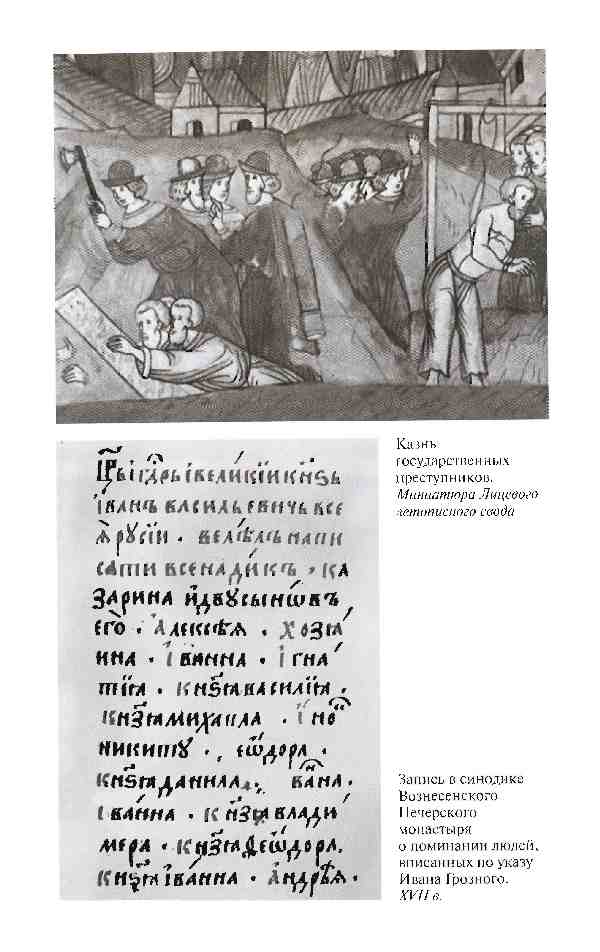 Казнь
государственных
преступников.
Миниатюра Лицевого
летописного свода
Црь і гдрь і великіи кнѕь
іванъ васильевичь все
ѧ русіи . велѣлъ напи
сати в сенадикъ , ка
зарина и дву сыновъ
его . Алексѣя . хозѧ
ина . іванна . ігна
тїѧ . кнѕѧ василїѧ .
кнѕѧ михаила . іно
никиту . , ѳѡдора .
кнѕѧ данила . вана .
іванна . кнѕѧ влади
мера . кнѕѧ ѳеѡдора .
кнѕѧ іванна . андрѣѧ .
Запись в синодике
Вознесенского
Печерского
монастыря
о поминании людей,
вписанных по указу
Ивана Грозного.
XVII в.